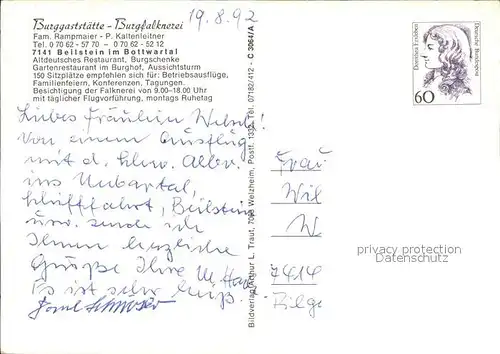 19.8.92
Burggaststätte - Burgfalknerei
Fam. Rampmaier - P. Kaltenleitner
Tel. 0 70 62 - 57 70 - 0 70 62 - 52 12
7141 Beilstein im Bottwartal
Altdeutsches Restaurant, Burgschenke
Gartenrestaurant im Burghof, Aussichtsturm
150 Sitzplätze empfehlen sich für: Betriebsausflüge,
Familienfeiern, Konferenzen, Tagungen.
Besichtigung der Falknerei von 9.00–18.00 Uhr
mit täglicher Flugvorführung, montags Ruhetag
Liebes Fräulein
von einem Ausflug
mit d. Schw. Albv.
ins
Schifffahrt, Beilstein
usw. sende ich
Ihnen herzliche
Grüße Ihre
Es ist sehr heiß.
Bildverlag Arthur L. Traut, 7063 Welzheim, Postf. 1332, Tel. 07182/412 - C 3064/A
Dorothea Erxleben
Deutsche Bundespost
60
Frau
Wil
W
7414
privacy protection
Datenschutz